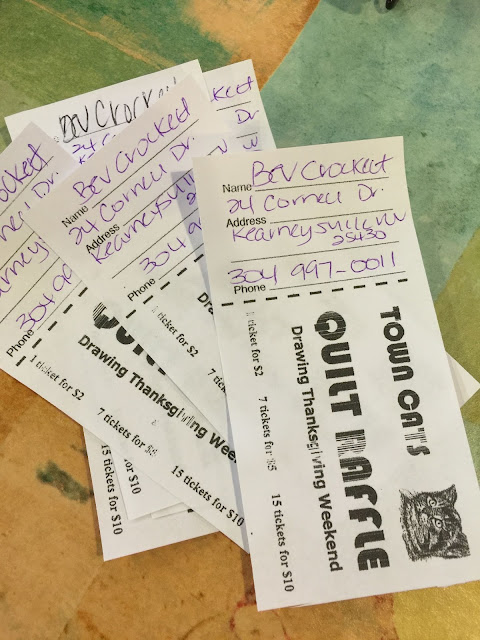 Bev Crockett
Name Bev Crockett
24 Cornell Dr.
Address
Kearneysville
304 99
Phone
Drawing Thanksgiving Weekend
1 ticket for $2
7 tickets for $5
15 tickets for $10
15 tickets for $10
304 9
Phone
1 ticket for $2
Name Bev Crockett
24 Cornell Dr.
Address
Kearneysville WV
25430
304 997-0011
Phone
TOWN CATS
QUILT RAFFLE
Drawing Thanksgiving Weekend
1 ticket for $2
7 tickets for $5
15 tickets for $10